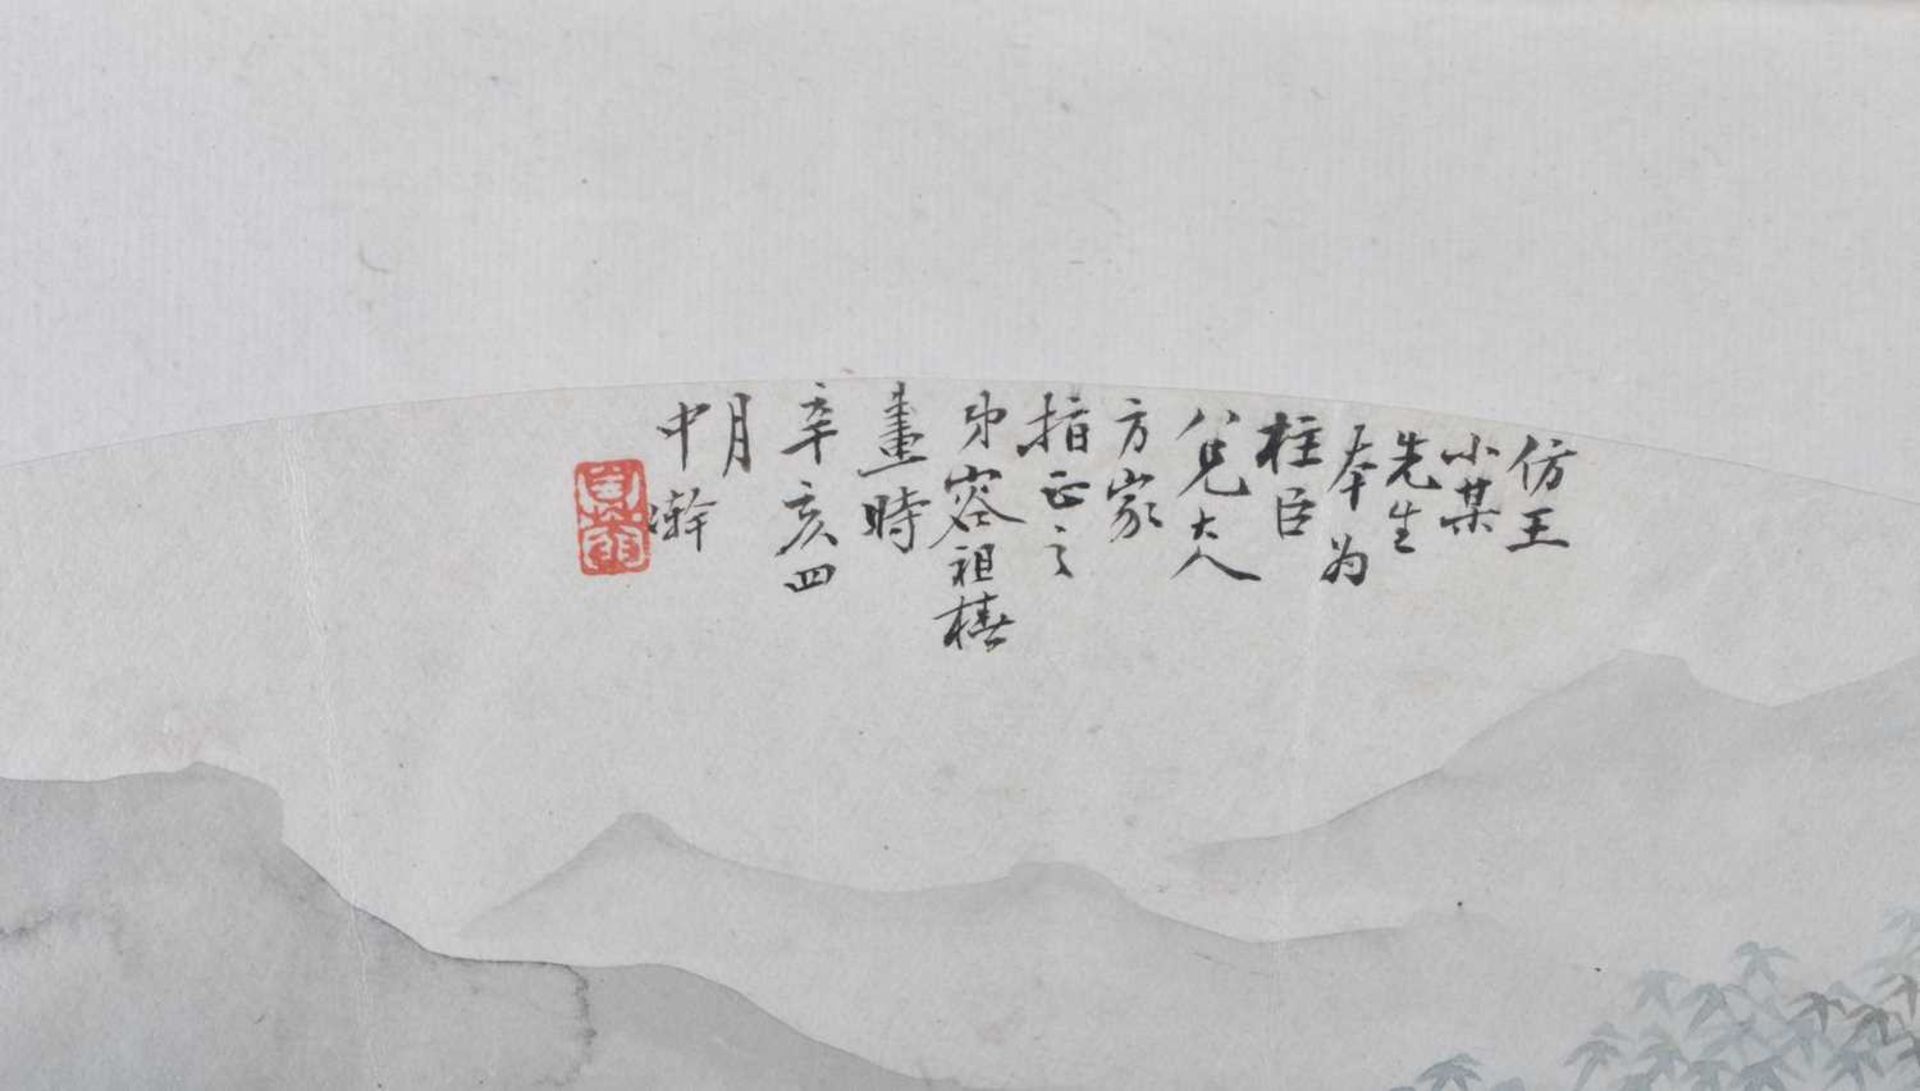 仿王
小某
先生
奉为
柱臣
仁兄大人
方家
指正之
弟容祖椿
畫時
辛亥四
月
中澣